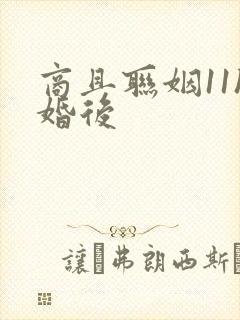 商且聯姻11
婚後
讓 弗朗西斯